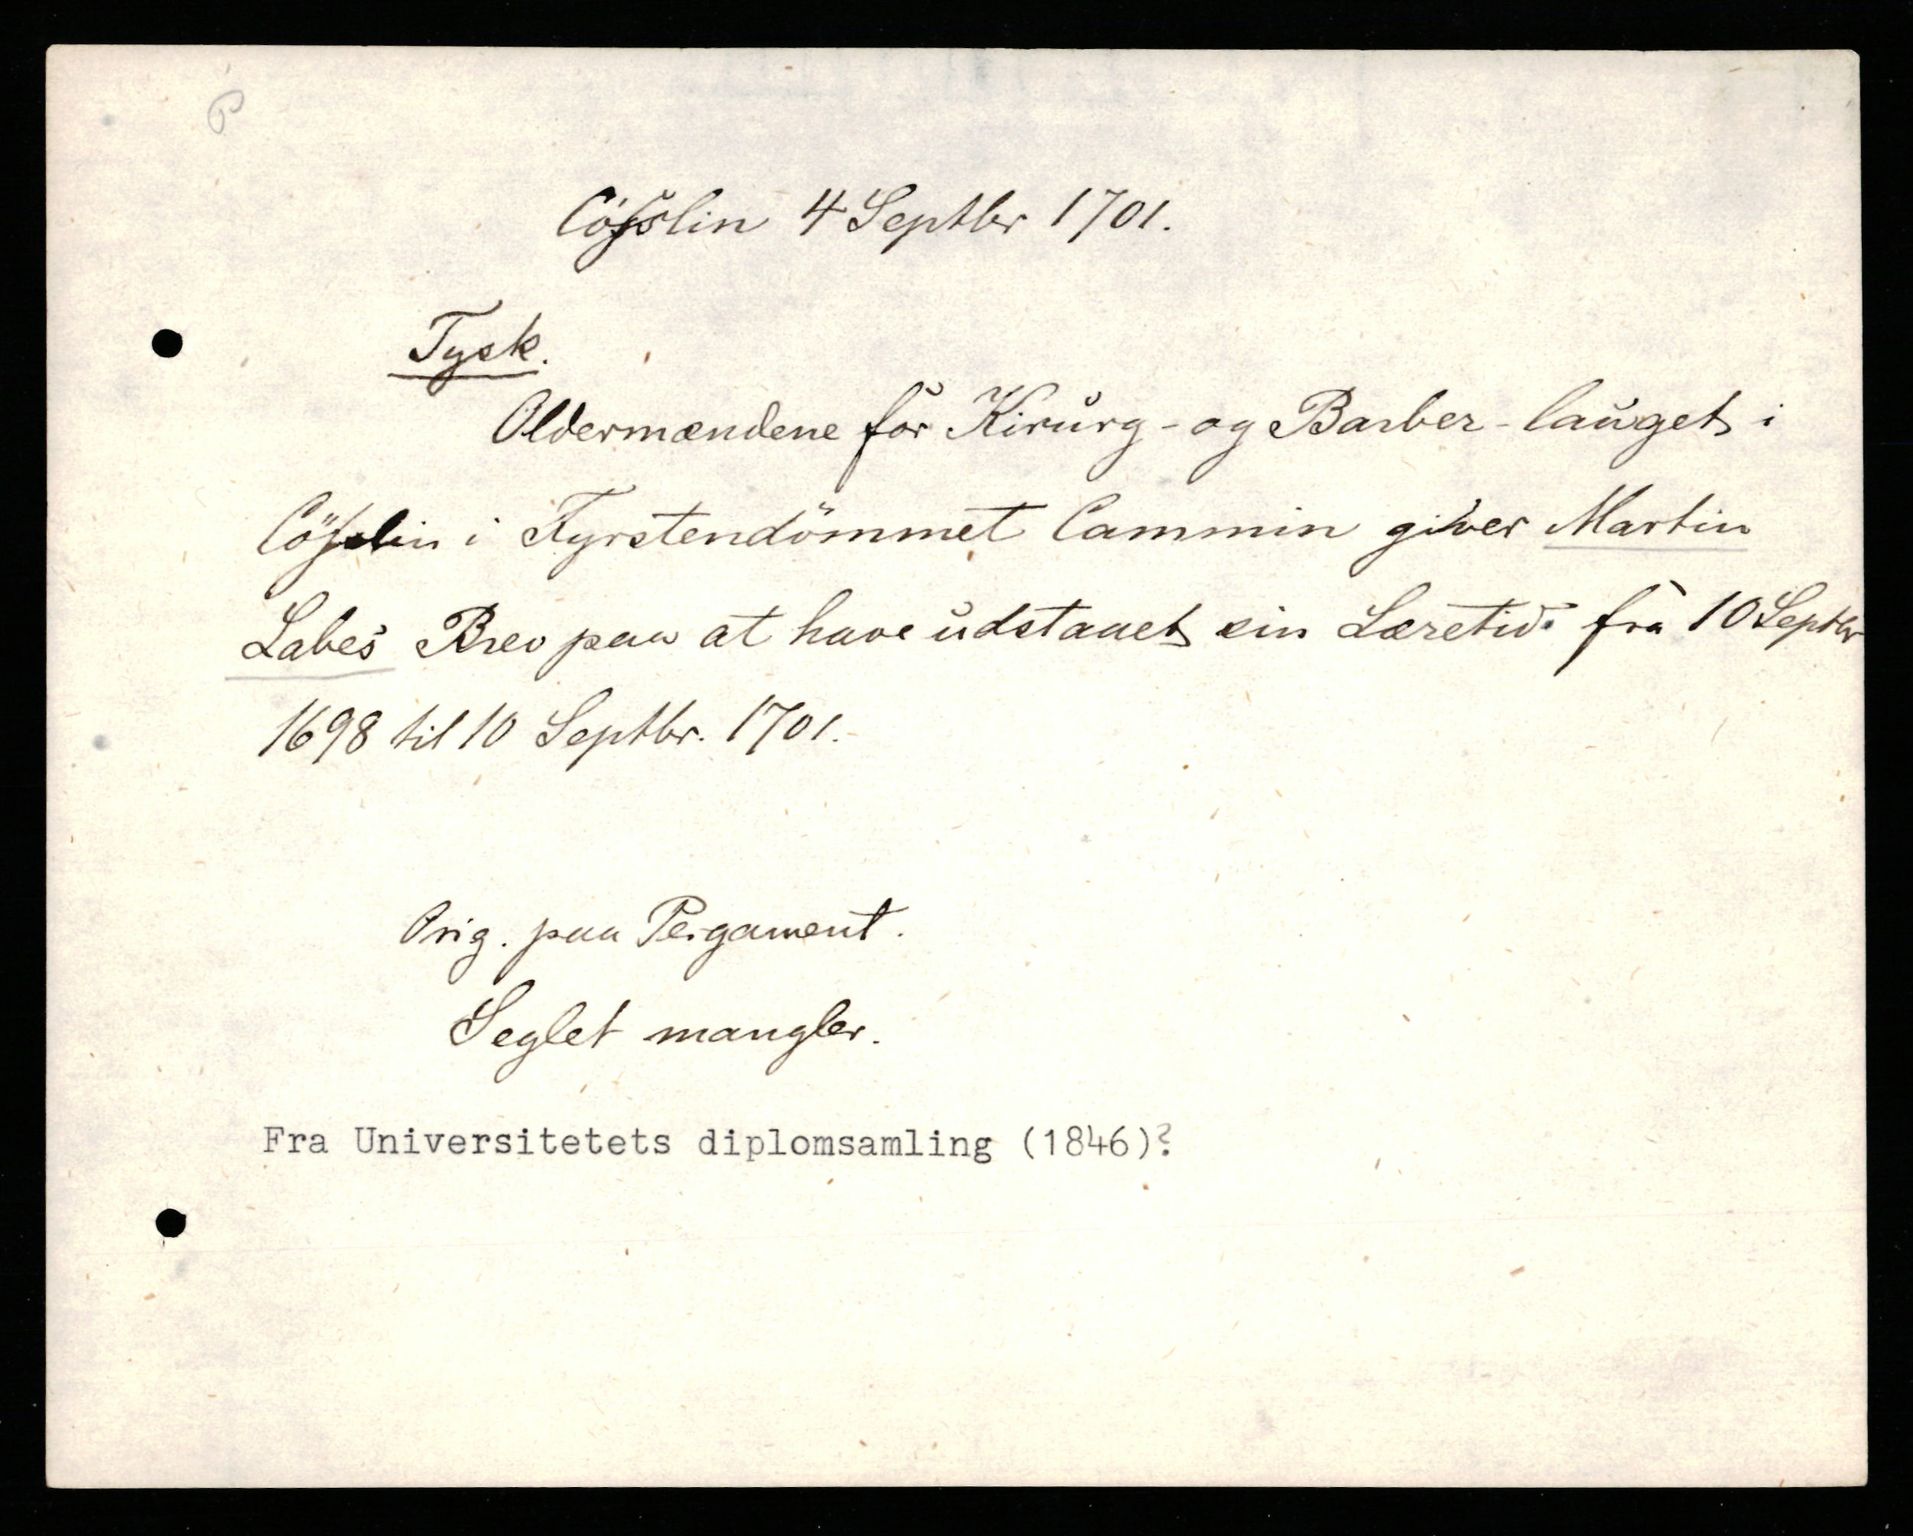 Cösslin 4 Septbr 1701.
Tysk.
Oldermændene for Kirurg- og Barber-lauget i
Cösslin i Fyrstendömmet Cammin giver Martin
Labes Brev paa at have udstaaet sin Læretid fra 10 Septbr
1698 til 10 Septbr. 1701.
Orig. paa Pergament.
Seglet mangler.
Fra Universitetets diplomsamling (1846)?